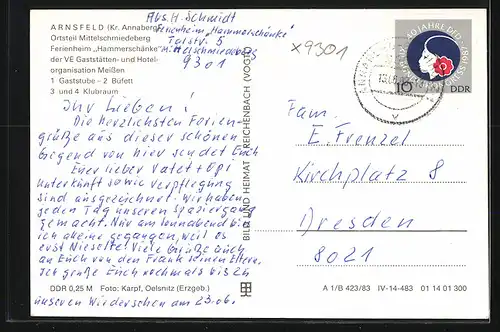 ARNSFELD (Kr. Annaberg)
Ortsteil Mittelschmiedeberg
Ferienheim „Hammerschänke"
der VE Gaststätten- und Hotel-
organisation Meißen
1 Gaststube - 2 Büfett
3 und 4 Klubraum
Abs. H. Schmidt
Ferienheim „Hammerschänke"
Talstr. 5
Mittelschmiedeberg
9301
x9301
Ihr Lieben!
Die herzlichsten Ferien-
grüße aus dieser schönen
Gegend von hier sendet Euch
Euer lieber Vater + Opi
Unterkunft sowie Verpflegung
sind ausgezeichnet. Wir haben
jeden Tag unseren Spaziergang
gemacht. Nur am Sonnabend bin
ich alleine gegangen, weil es
erst Nieselte. Viele Grüße auch
an Euch von den Frank seinen Eltern.
Ich grüße Euch nochmals bis zu
unseren Wiedersehen am 23.06.
DDR 0,25 M Foto: Karpf, Oelsnitz (Erzgeb.)
BILD UND HEIMAT REICHENBACH (VOGTL)
40 JAHRE DFD
10 DDR
Fam.
E. Frenzel
Kirchplatz 8
Dresden
8021
A 1/B 423/83 IV-14-483 01 14 01 300